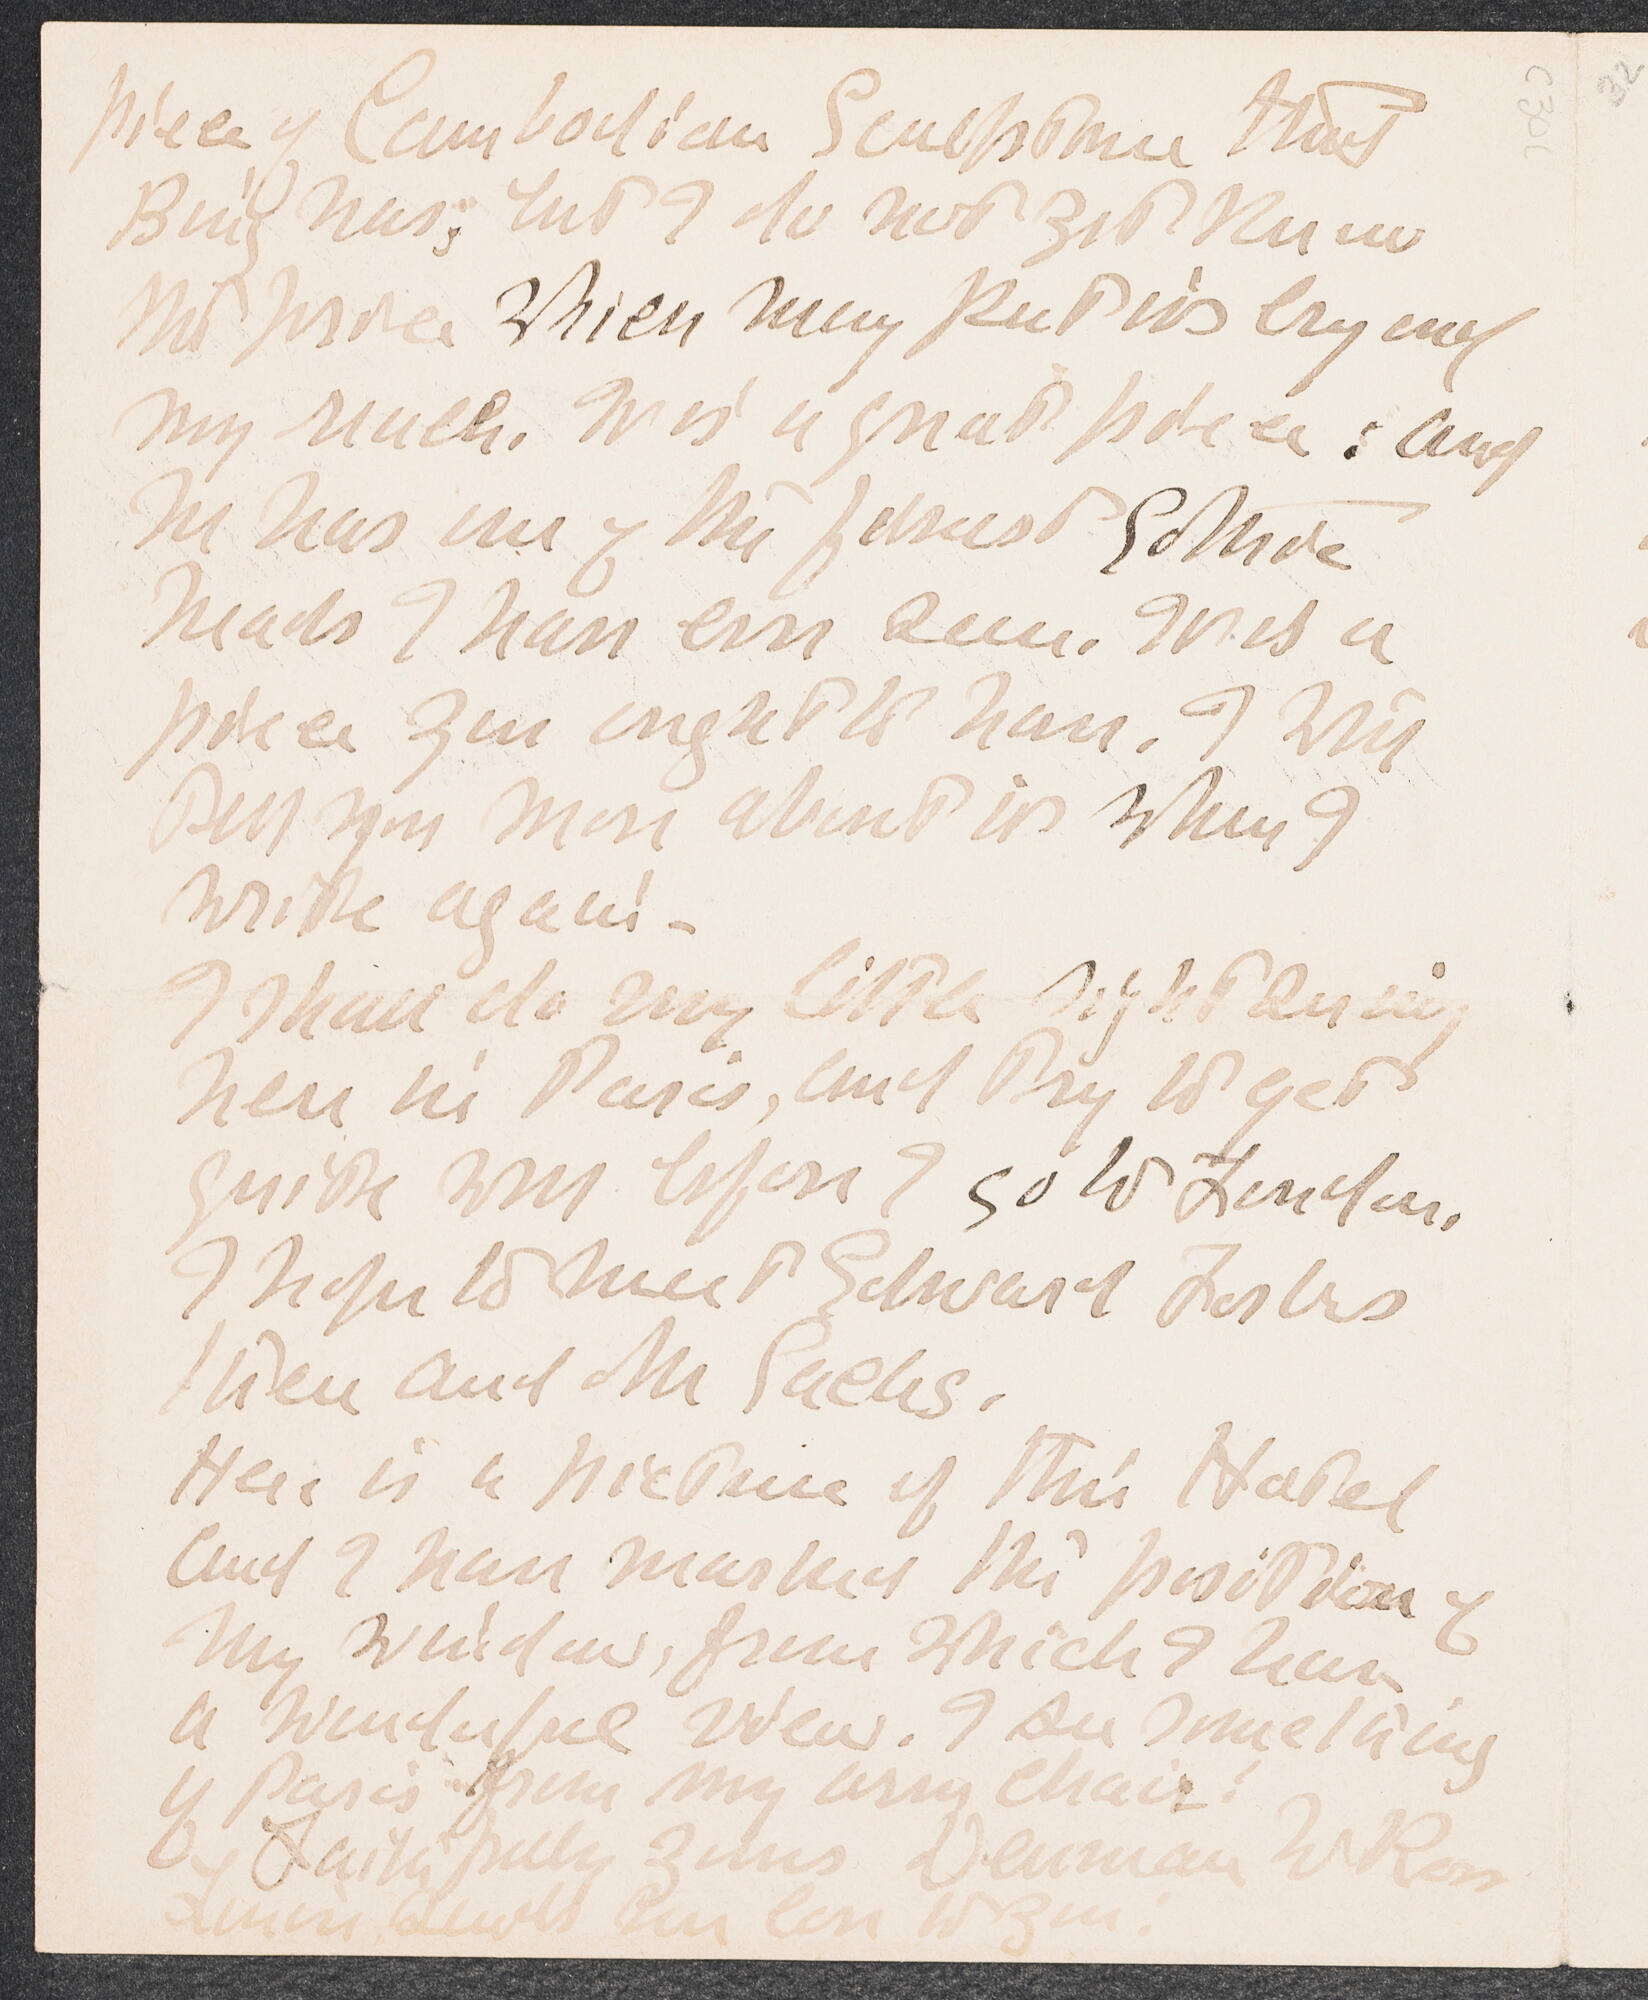 piece of Cambodian Sculpture that
Bing has; but I do not yet know
the price which may put it beyond
my reach. It is a great piece: and
he has one of the finest Gothic
heads I have ever seen. It is a
piece you ought to have. I will
tell you more about it when I
write again -
I shall do my little sightseeing
here in Paris, and try to get
quite well before I go to London.
I hope to meet Edward Forbes
there and Mr Sachs.
Here is a picture of this Hotel
and I have marked the position of
my window, from which I have
a wonderful view. I see something
of Paris from my arm chair!
Faithfully yours Denman W Ross
sends love to you!
C301
32